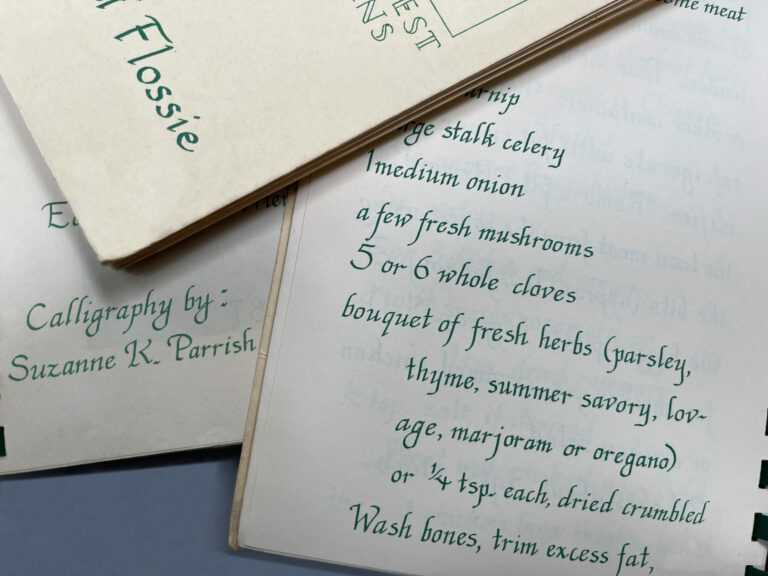 Flossie
EST
ENS
Calligraphy by:
Suzanne K. Parrish
some meat
turnip
large stalk celery
1 medium onion
a few fresh mushrooms
5 or 6 whole cloves
bouquet of fresh herbs (parsley,
thyme, summer savory, lov-
age, marjoram or oregano)
or ¼ tsp. each, dried crumbled
Wash bones, trim excess fat,